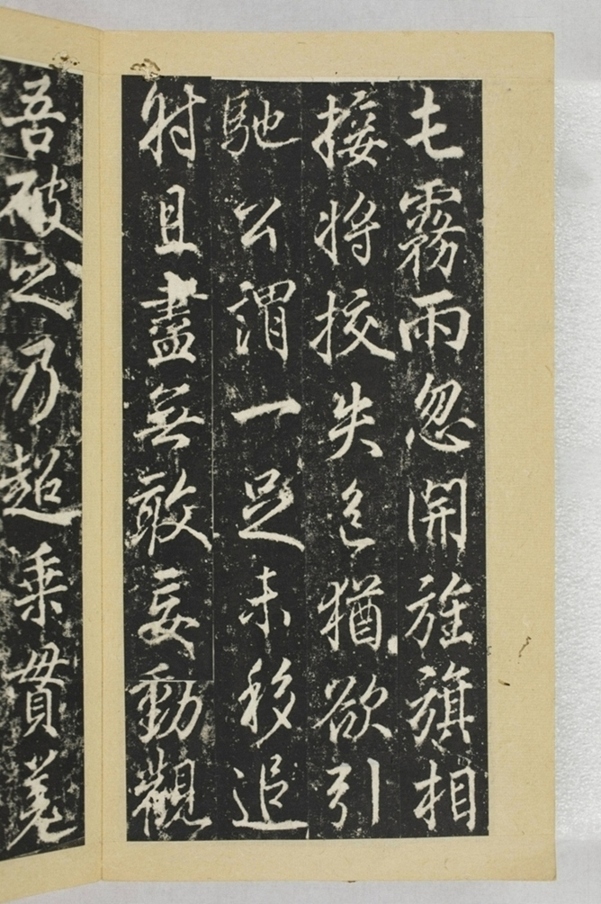 屯霧雨忽開旌旗相
接将挍失色猶欲引
馳公謂一足未移追
射且盡無敢妄動觀
吾破之乃超乘貫羌